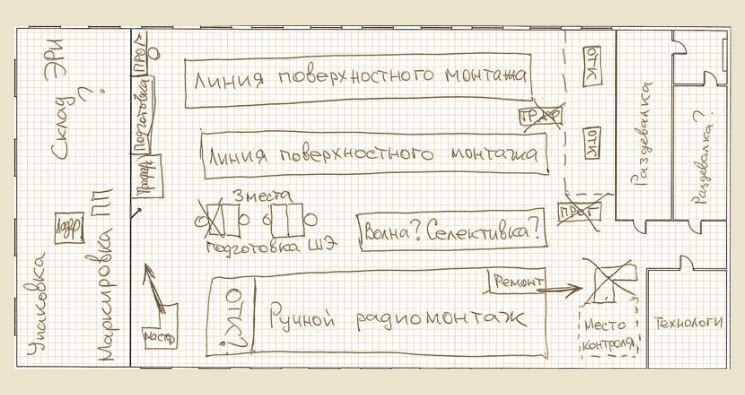 Склад ЭРИ
?
Упаковка
Маркировка ПП
ПРОГ
Подготовка
Линия поверхностного монтажа
ОТК
Линия поверхностного монтажа
ОТК
Раздевалка
Раздевалка?
3 места
Подготовка ШЭ
Волна? Селективка?
ПРОГ
ОТК?
Ручной радиомонтаж
Ремонт
Место
контроля
Технологи